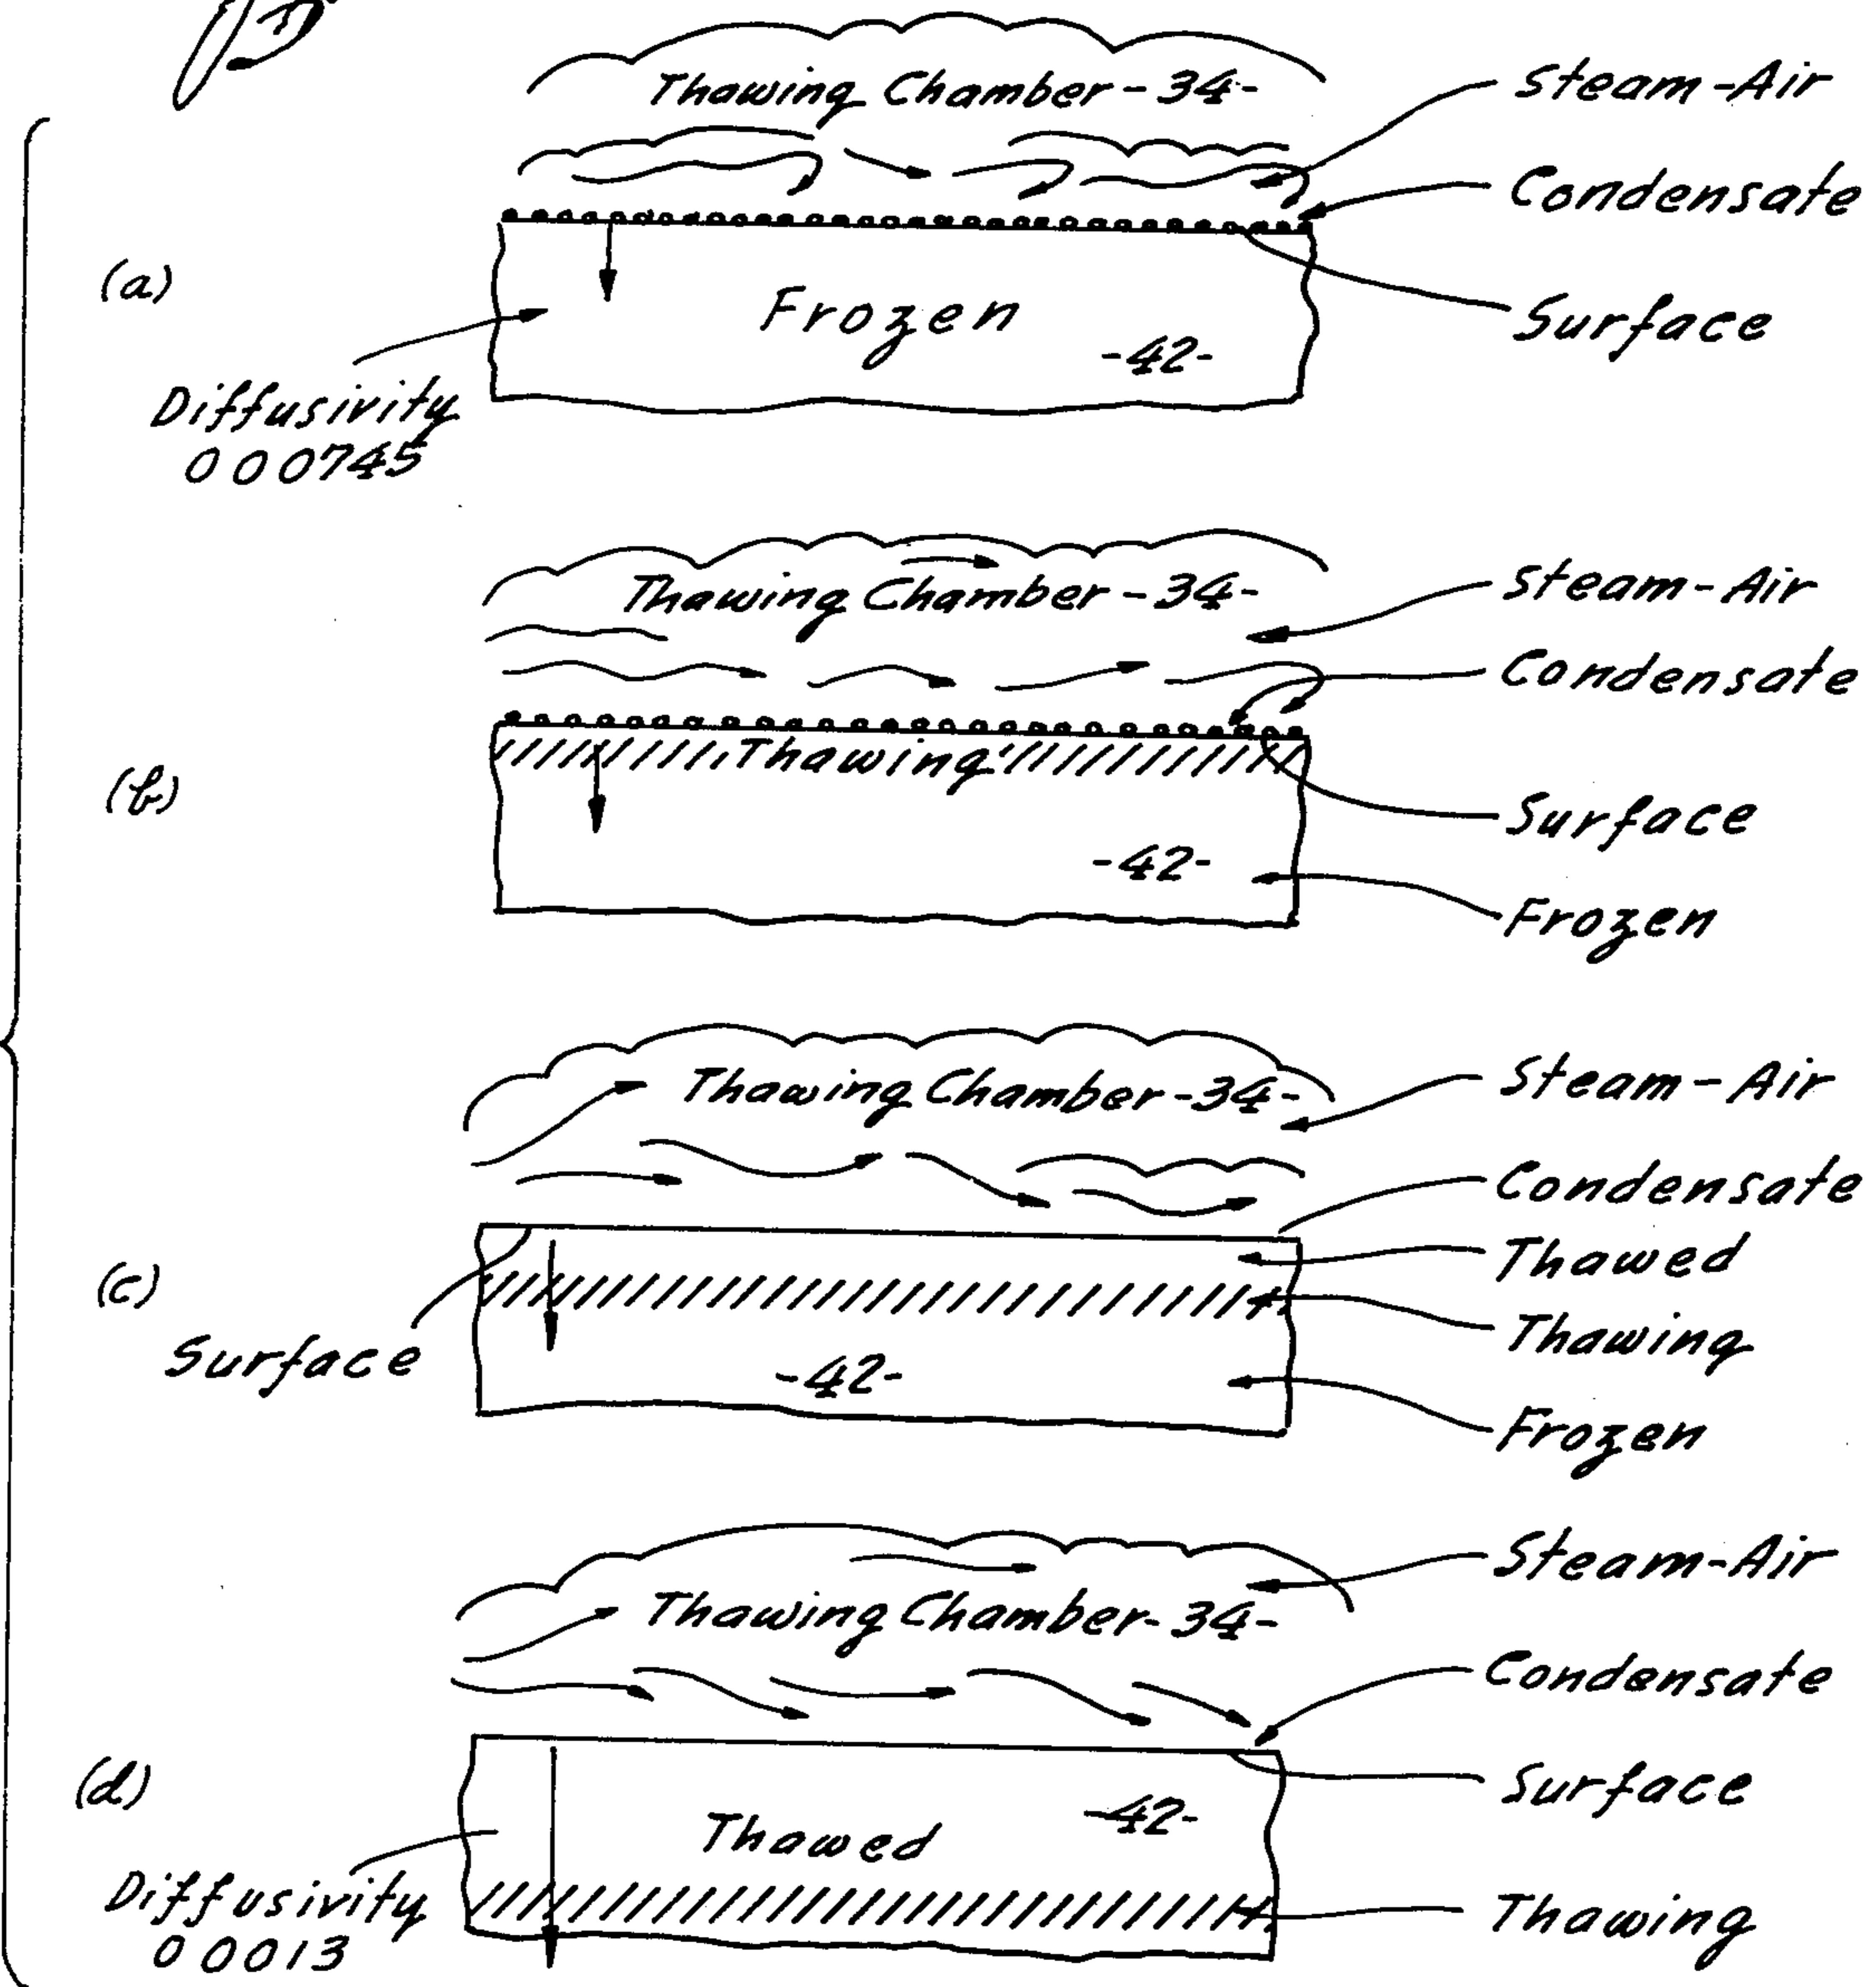 Thawing Chamber -34-
Steam-Air
Condensate
(a)
Frozen
Surface
-42-
Diffusivity
000745
Thawing Chamber -34-
Steam-Air
Condensate
Thawing
(b)
Surface
-42-
Frozen
Thawing Chamber -34-
Steam-Air
Condensate
Thawed
(c)
Thawing
Surface
-42-
Frozen
Steam-Air
Thawing Chamber-34-
Condensate
(d)
Surface
-42-
Thawed
Diffusivity
00013
Thawing